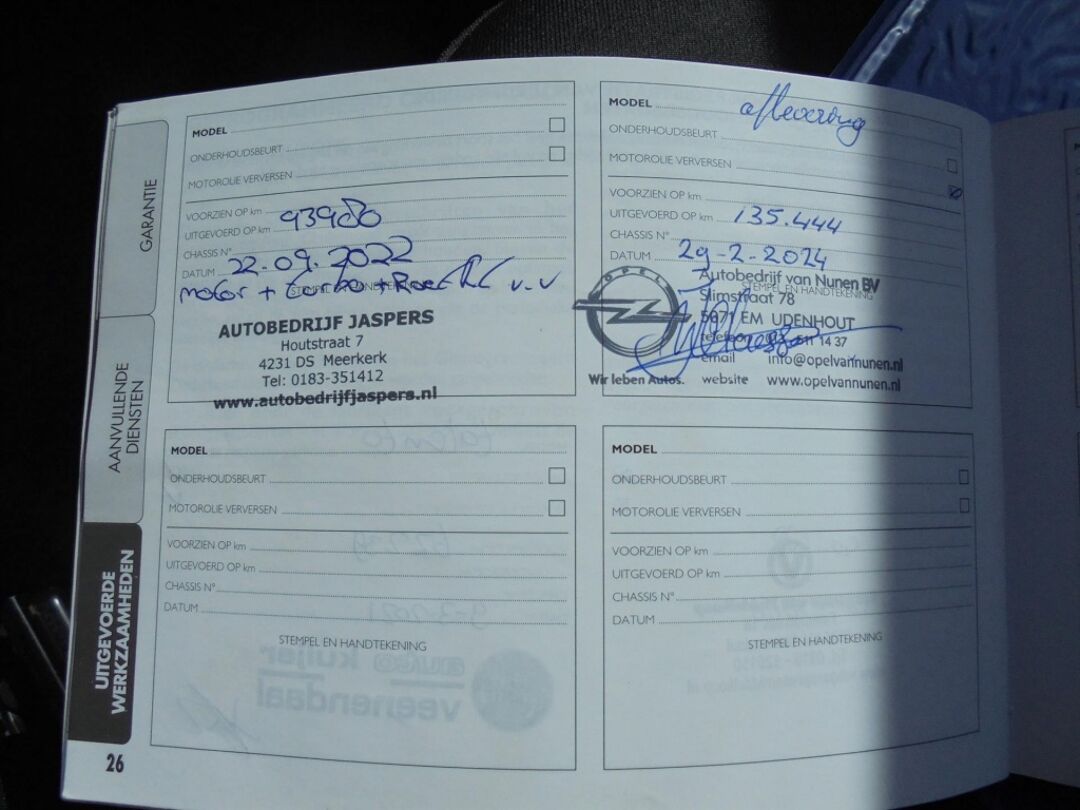 GARANTIE
AANVULLENDE
DIENSTEN
UITGEVOERDE
WERKZAAMHEDEN
26
MODEL
ONDERHOUDSBEURT
MOTOROLIE VERVERSEN
VOORZIEN OP km
UITGEVOERD OP km 93980
CHASSIS N°
DATUM 22.09.2022
STEMPEL EN HANDTEKENING
motor + turbo + v.v
AUTOBEDRIJF JASPERS
Houtstraat 7
4231 DS Meerkerk
Tel: 0183-351412
www.autobedrijfjaspers.nl
MODEL aflevering
ONDERHOUDSBEURT
MOTOROLIE VERVERSEN
VOORZIEN OP km
UITGEVOERD OP km 135.444
CHASSIS N°
DATUM 29-2-2024
STEMPEL EN HANDTEKENING
OPEL
Autobedrijf van Nunen BV
Slimstraat 78
5071 EM UDENHOUT
telefoon 511 14 37
email info@opelvannunen.nl
Wir leben Autos. website www.opelvannunen.nl
MODEL
ONDERHOUDSBEURT
MOTOROLIE VERVERSEN
VOORZIEN OP km
UITGEVOERD OP km
CHASSIS N°
DATUM
STEMPEL EN HANDTEKENING
MODEL
ONDERHOUDSBEURT
MOTOROLIE VERVERSEN
VOORZIEN OP km
UITGEVOERD OP km
CHASSIS N°
DATUM
STEMPEL EN HANDTEKENING